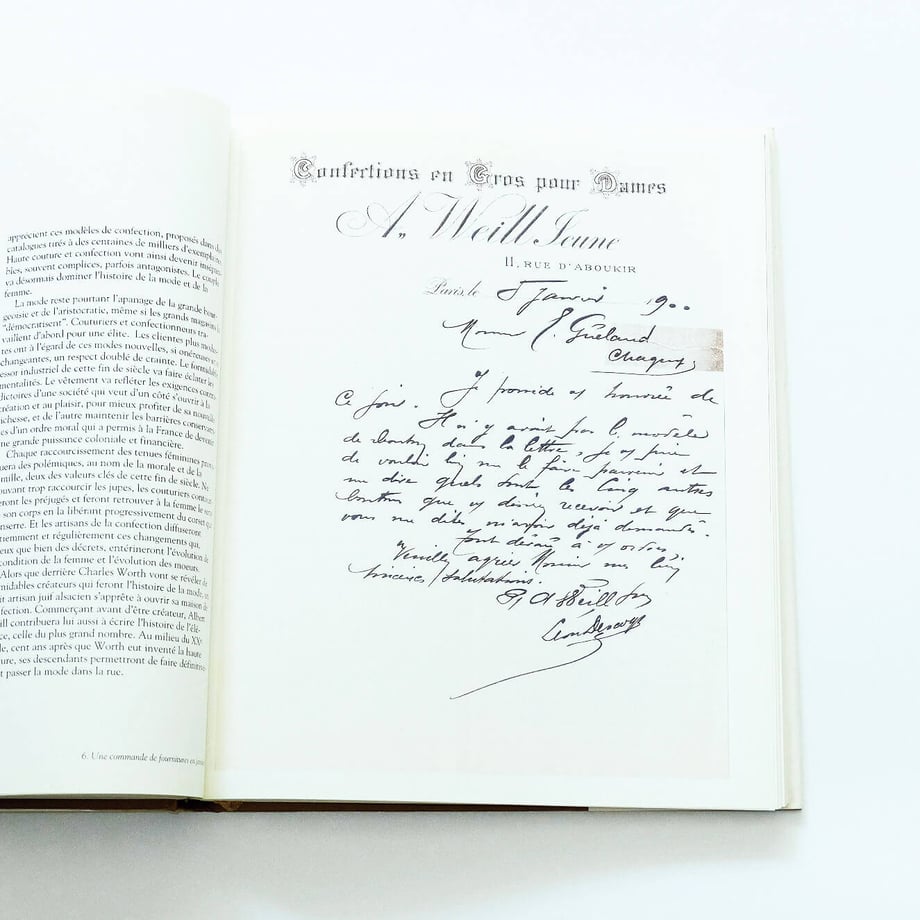 apprécient ces modèles de confection, proposés dans
catalogues tirés à des centaines de milliers d'exempl
bles, souvent complices, parfois antagonistes. Le couple
Haute couture et confection vont ainsi devenir
va désormais dominer l'histoire de la mode et de la
femme.
La mode reste pourtant l'apanage de la grande bour-
geoisie et de l'aristocratie, même si les grands magasins la
"démocratisent". Couturiers et confectionneurs tra-
vaillent d'abord pour une élite. Les clientes plus
res ont à l'égard de ces modes nouvelles, si onéreuses
changeantes, un respect doublé de crainte. Le formidable
essor industriel de cette fin de siècle va faire éclater les
mentalités. Le vêtement va refléter les exigences
dictoires d'une société qui veut d'un côté s'ouvrir à la
création et au plaisir, pour mieux profiter de sa nouvelle
richesse, et de l'autre maintenir les barrières
es d'un ordre moral qui a permis à la France de devenir
ne grande puissance coloniale et financière.
Chaque raccourcissement des tenues féminines
uera des polémiques, au nom de la morale et de la
mille, deux des valeurs clés de cette fin de siècle. Ne
ouvant trop raccourcir les jupes, les couturiers
ront les préjugés et feront retrouver à la femme le
son corps en la libérant progressivement du corset qui
nserre. Et les artisans de la confection diffuseront
tiemment et régulièrement ces changements qui,
eux que bien des décrets, entérineront l'évolution de
condition de la femme et l'évolution des moeurs.
Alors que derrière Charles Worth vont se révéler de
midables créateurs qui feront l'histoire de la mode, un
it artisan juif alsacien s'apprête à ouvrir sa maison de
fection. Commerçant avant d'être créateur, Albert
ill contribuera lui aussi à écrire l'histoire de l'élé-
ce, celle du plus grand nombre. Au milieu du XXe
le, cent ans après que Worth eut inventé la haute
ure, ses descendants permettront de faire
t passer la mode dans la rue.
6. Une commande de fournitures en
Confections en Gros pour Dames
A. Weill Jeune
11, RUE D'ABOUKIR
Paris, le 5 Janvier 1900
Chagny
honorée de
Ce jour.
Il n'y avait pas le modèle
de dans la lettre, je
de vouloir me le faire parvenir et
me dire quels sont les cinq autres
que désirez recevoir et que
vous me dites m'avoir déjà demandés.
Veuillez agréer Monsieur mes
sincères salutations.
A Weill
Léon